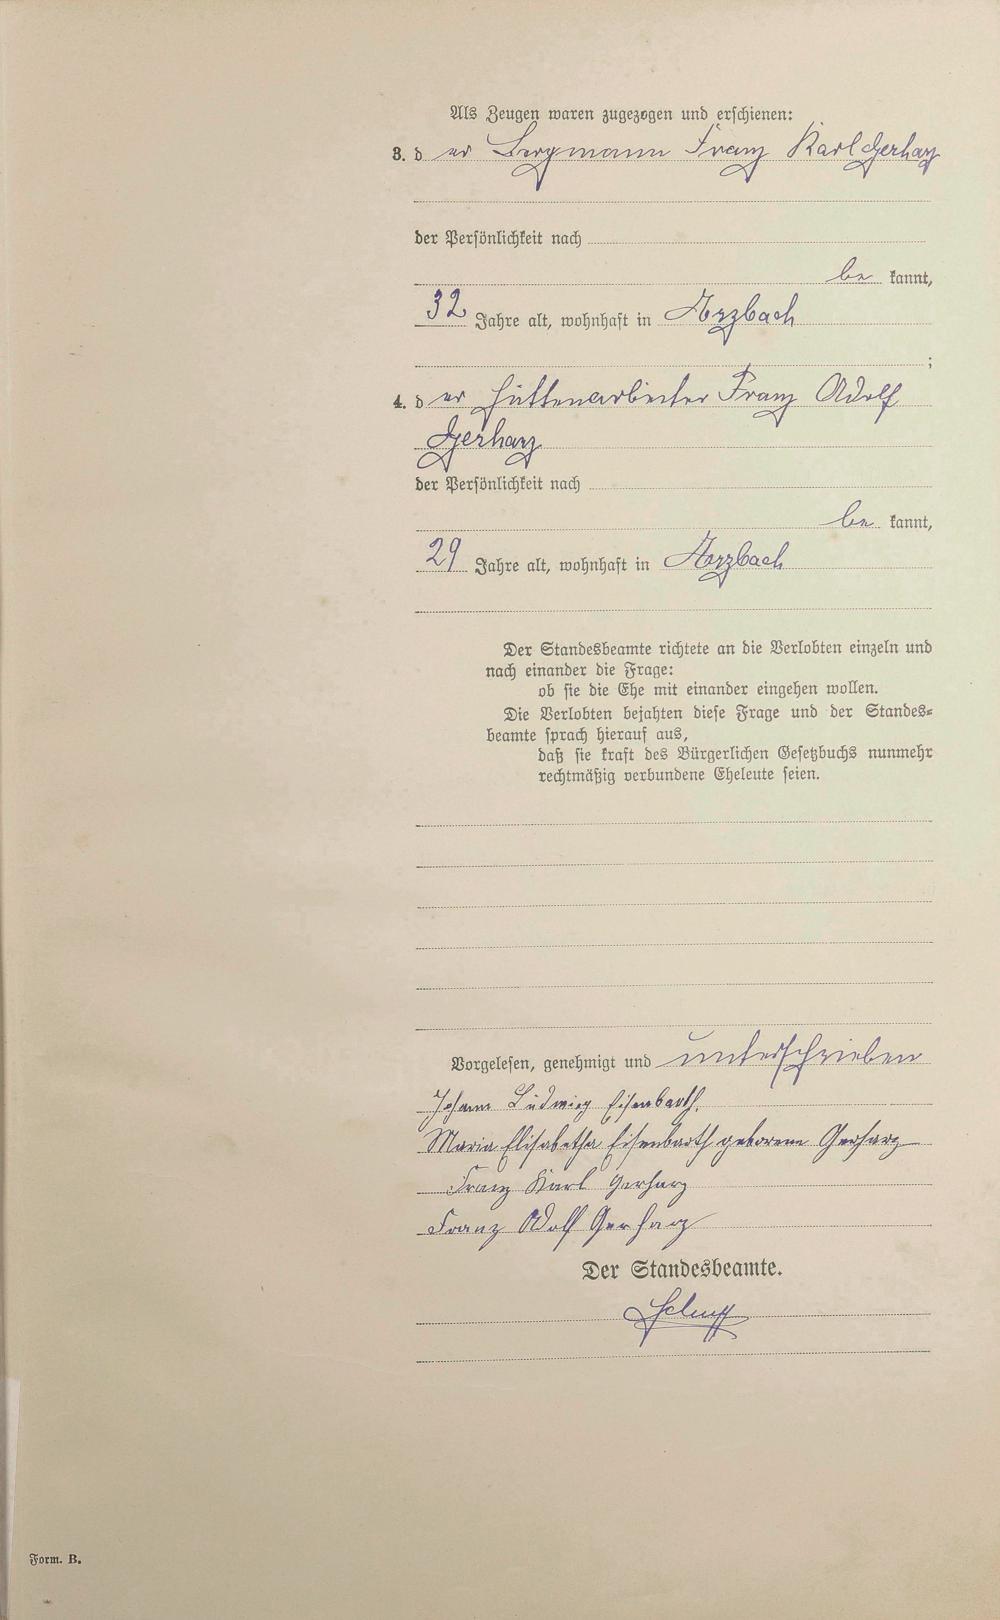 Als Zeugen waren zugezogen und erschienen:
3. d er Bergmann Franz Karl Gerharz
der Persönlichkeit nach
be kannt,
32 Jahre alt, wohnhaft in Arzbach
;
4. d er Hüttenarbeiter Franz Adolf
Gerharz
der Persönlichkeit nach
be kannt,
29 Jahre alt, wohnhaft in Arzbach
Der Standesbeamte richtete an die Verlobten einzeln und
nach einander die Frage:
ob sie die Ehe mit einander eingehen wollen.
Die Verlobten bejahten diese Frage und der Standes-
beamte sprach hierauf aus,
daß sie kraft des Bürgerlichen Gesetzbuchs nunmehr
rechtmäßig verbundene Eheleute seien.
Vorgelesen, genehmigt und unterschrieben
Johann Ludwig Eisenbarth.
Maria Elisabetha Eisenbarth geborene Gerharz
Franz Karl Gerharz
Franz Adolf Gerharz
Der Standesbeamte.
Form. B.